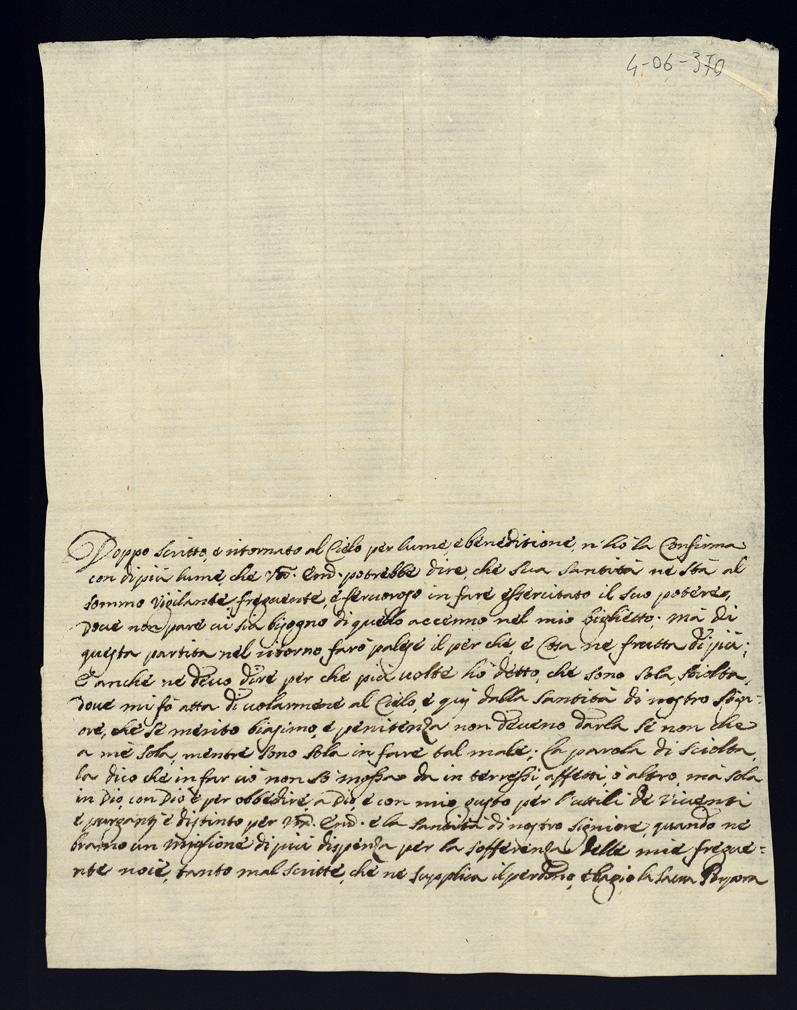 4-06-370
Doppo scritto, e ritornato al Cielo per lume, e beneditione, n'hò la Confirma
con di più lume, che Vra. Emd. potrebbe dire, che sua santità ne sta al
sommo vigilante, frequente, e fervoroso in fare essercitato il suo potere,
dove non pare vi sia bisogno di quello accenno nel mio biglietto; mà di
questa partita nel ritorno farò palese il per che, e Cota ne frutta di più;
E anche ne devo dire per che più volte hò detto, che sono sola sciolta,
dove mi fò atta di volarmene al Cielo, e quì dalla santità di nostro sign-
ore, che se merito biasimo, e penitenza non deveno darla se non che
a me sola, mentre sono sola in fare tal male; la parola di sciolta,
la dico che in far ciò non sò mossa da in terressi, affetti ò altro, mà sola
in Dio, con Dio e per obbedire, a Dio e con mio gusto per l'uttili de viventi
e purganti e distinto per Vra. Emd. e la santità di nostro signiore, quando ne
bramo un miglione di più dispenza per la sofferenza delle mie freque=
nte noie, tanto mal scritte, che ne supplica il perdono, e bagio la sacra Porpora